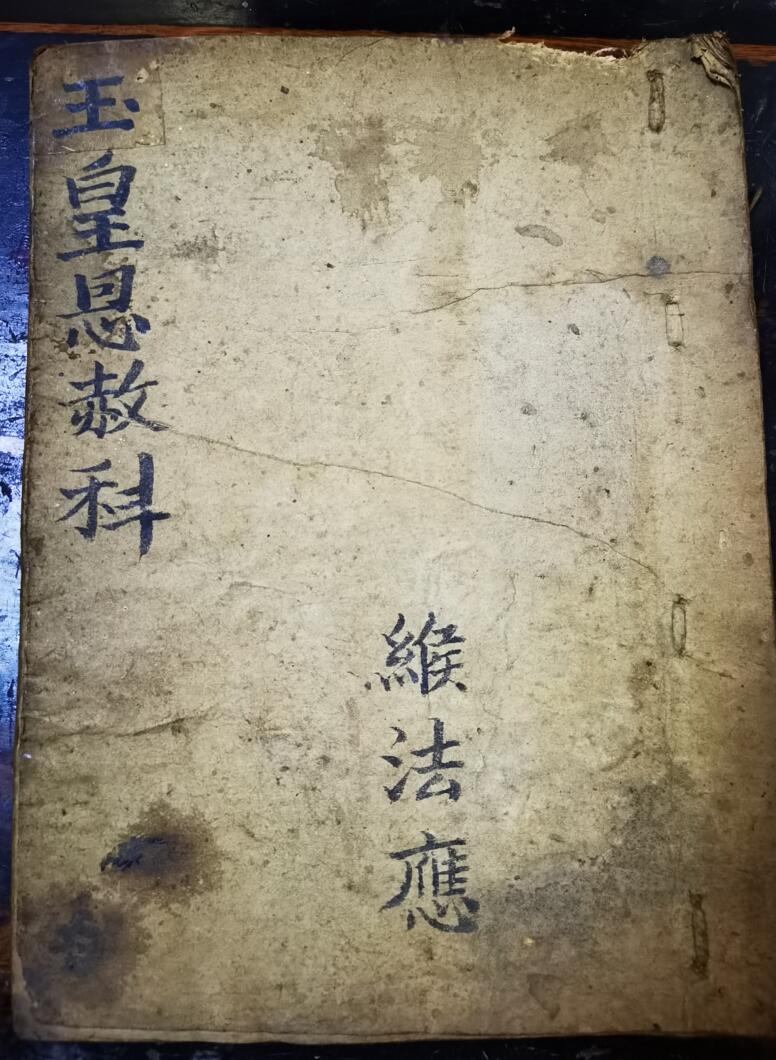 玉皇恩赦科
緱法應